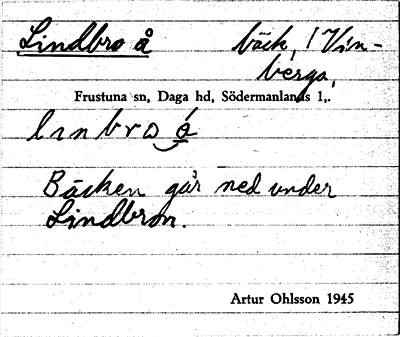 Lindbro å bäck, i Vin-
berga,
Frustuna sn, Daga hd, Södermanlands l,.
linbro
Bäcken går ned under
Lindbron.
Artur Ohlsson 1945